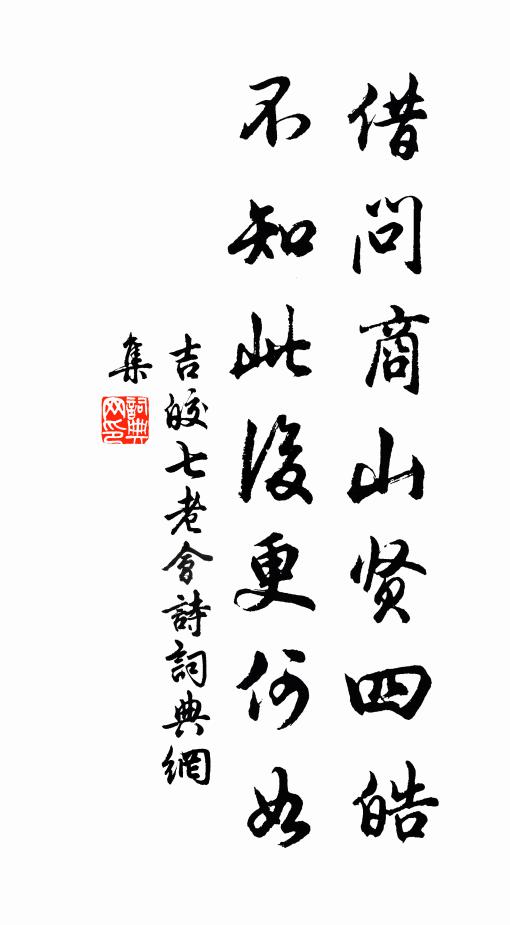 借问商山贤四皓
不知此後更何如
吉皎七老會詩詞典網
集
詞典
网印